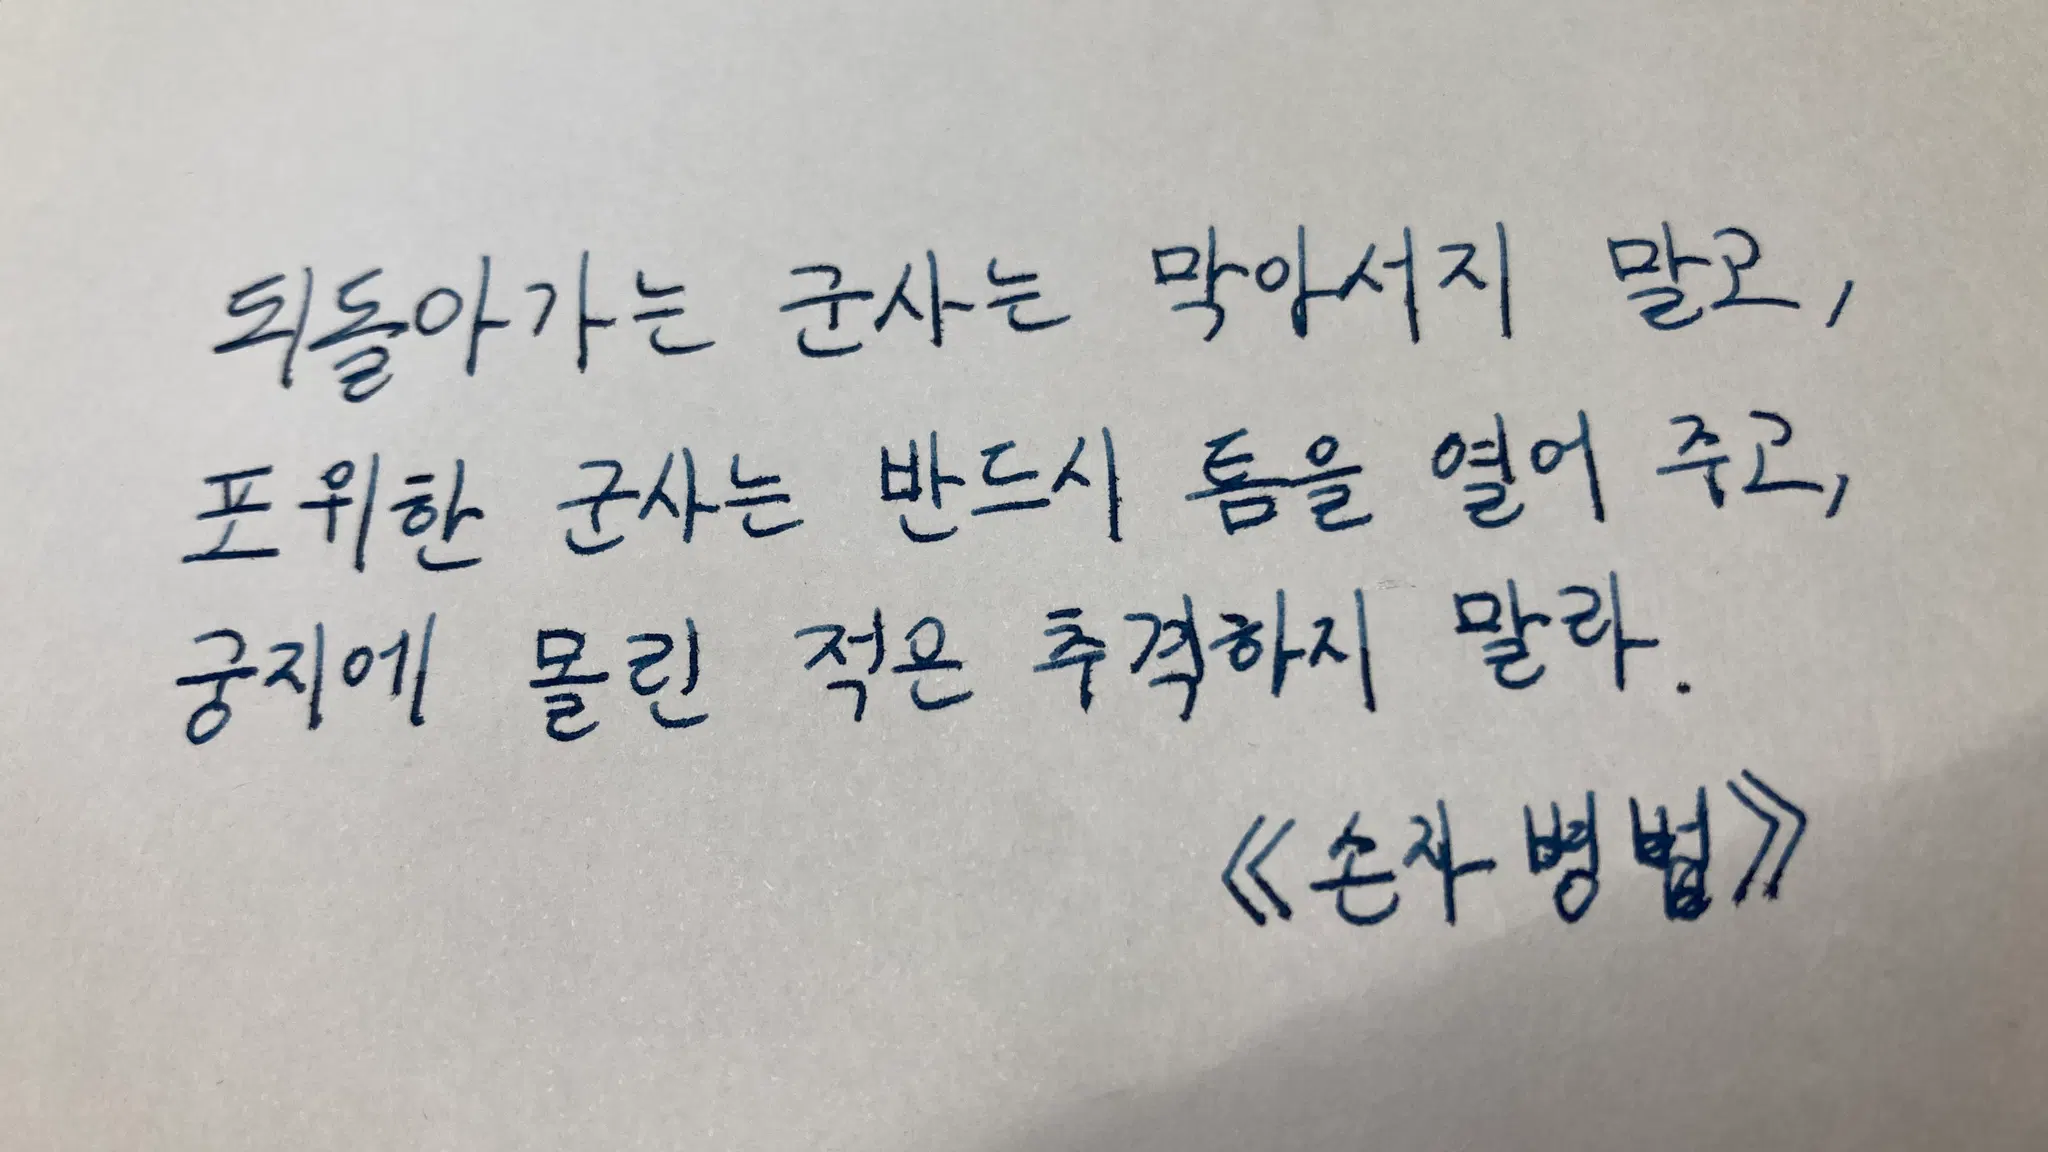 되돌아가는 군사는 막아서지 말고,
포위한 군사는 반드시 틈을 열어 주고,
궁지에 몰린 적은 추격하지 말라.
《손자병법》